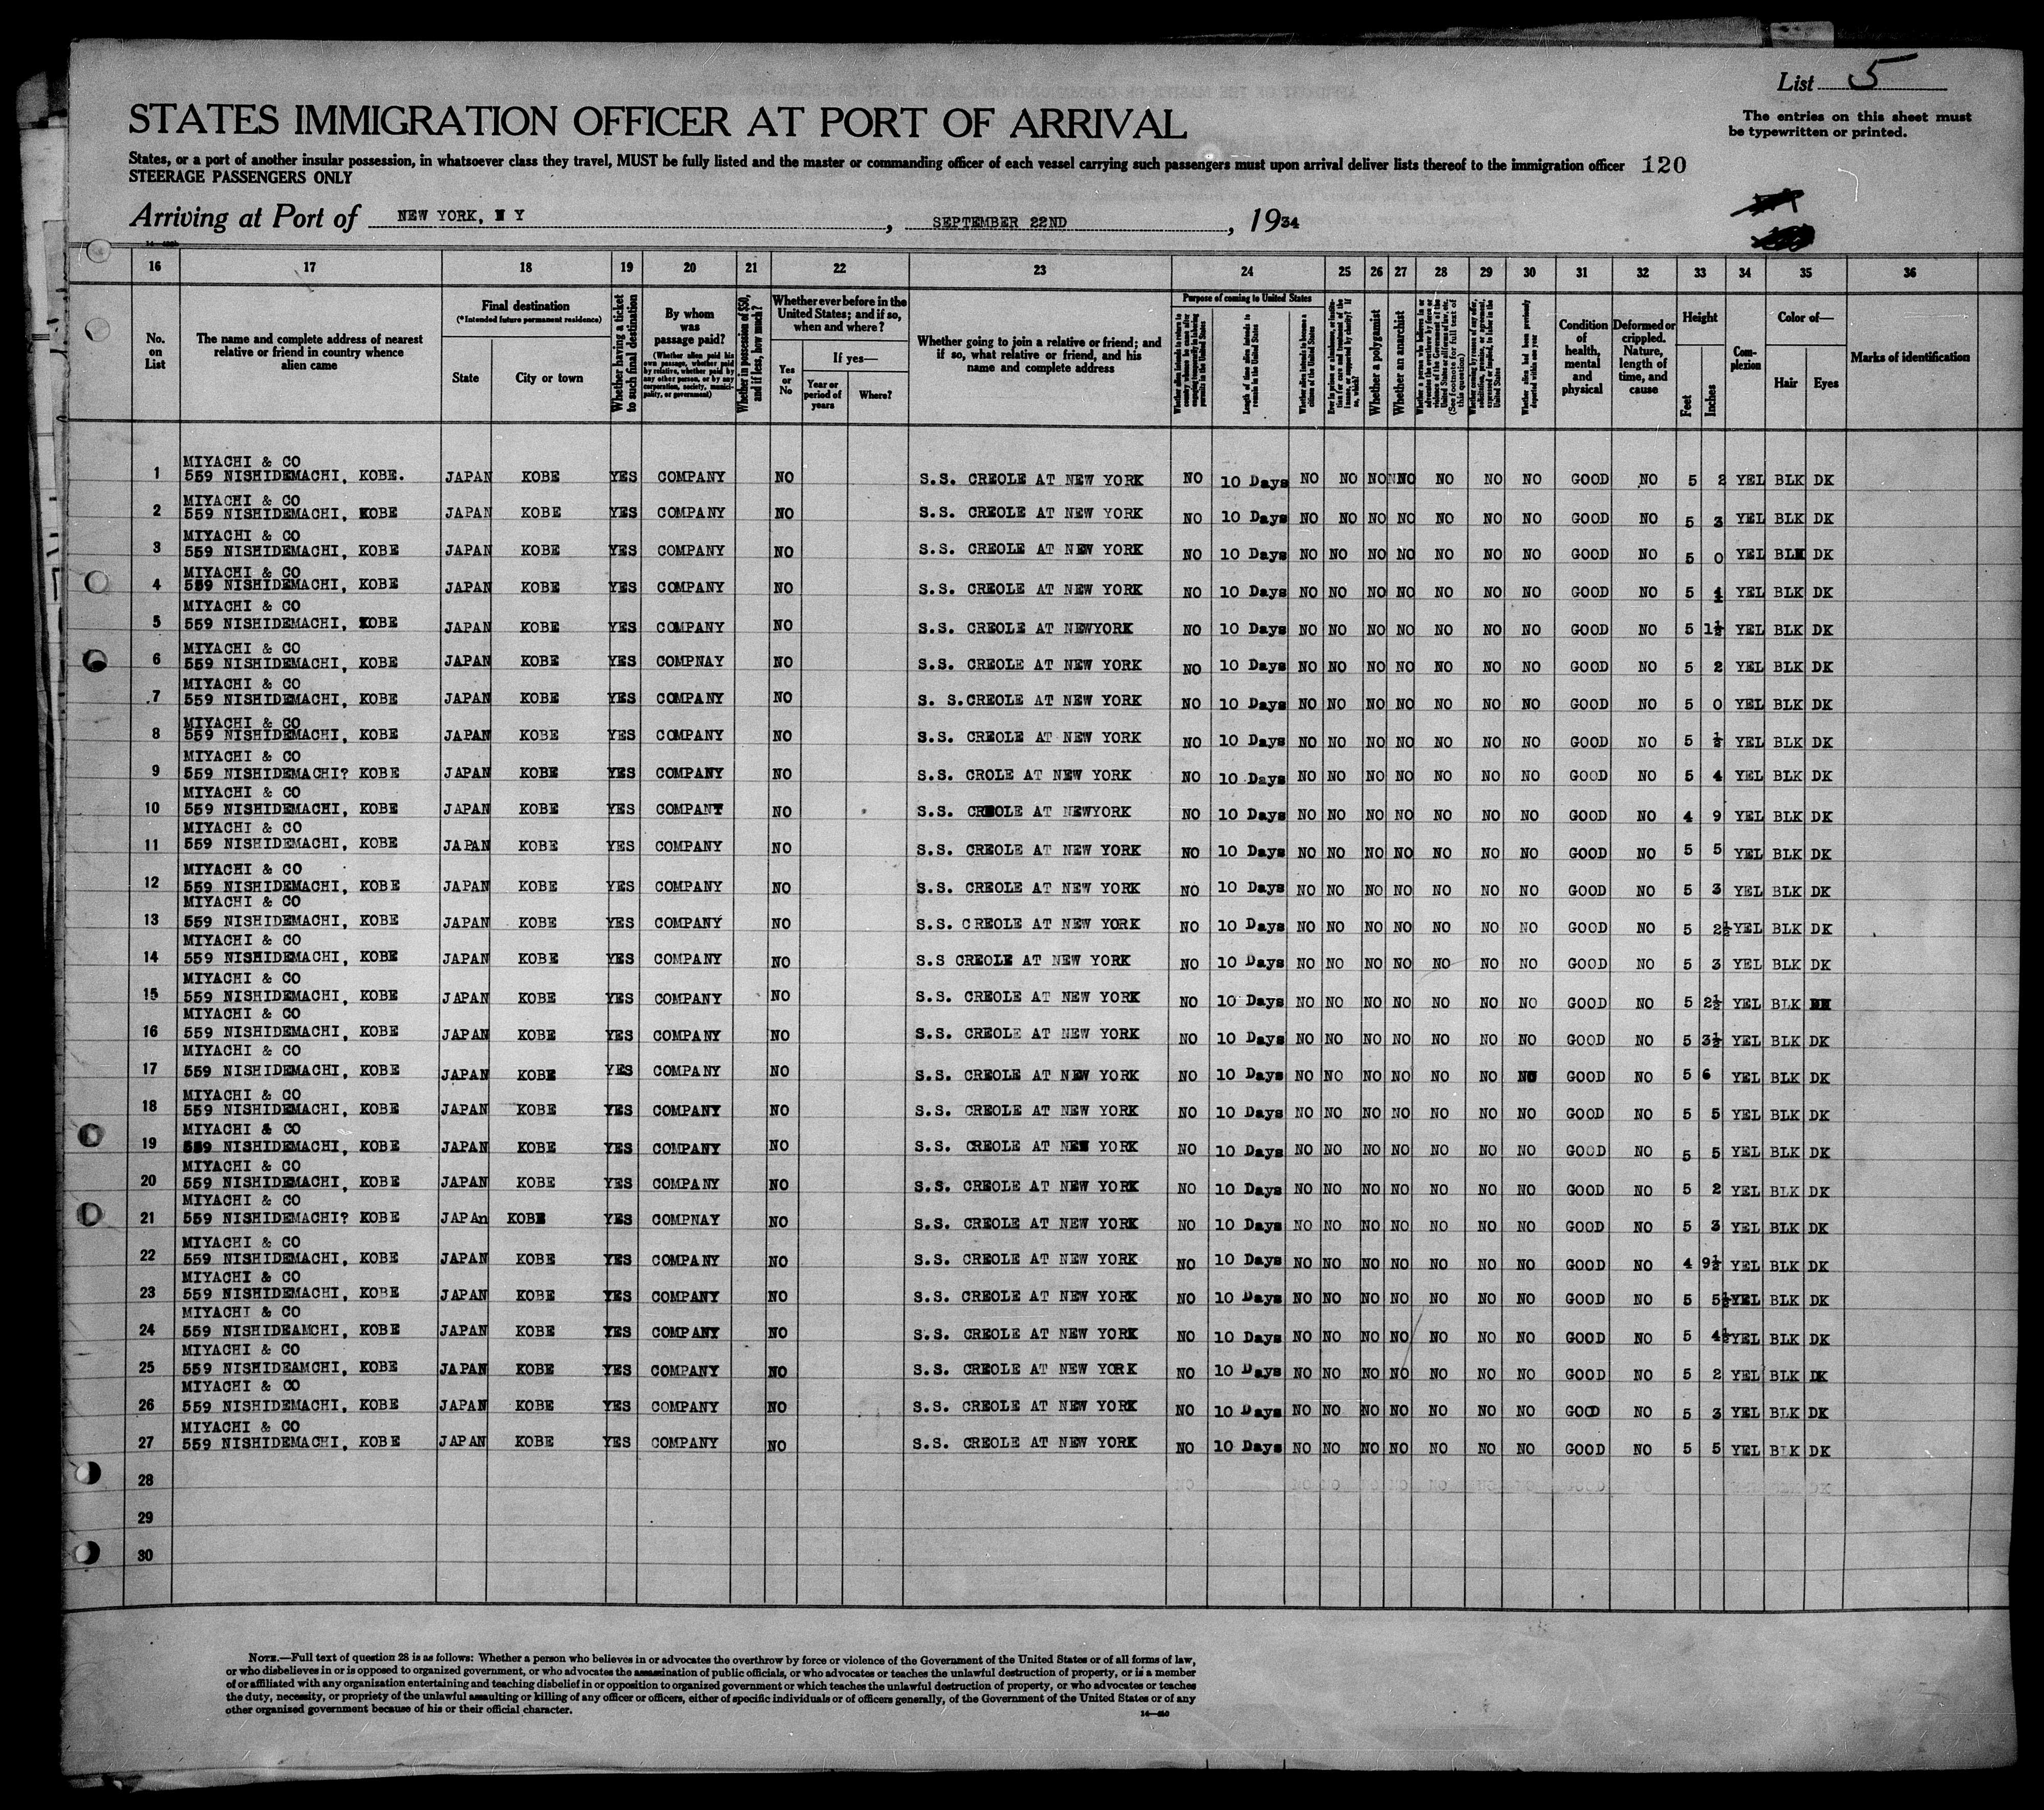 List 5
STATES IMMIGRATION OFFICER AT PORT OF ARRIVAL
The entries on this sheet must
be typewritten or printed.
States, or a port of another insular possession, in whatsoever class they travel, MUST be fully listed and the master or commanding officer of each vessel carrying such passengers must upon arrival deliver lists thereof to the immigration officer 120
STEERAGE PASSENGERS ONLY
Arriving at Port of NEW YORK, N Y, SEPTEMBER 22ND, 1934
16 17 18 19 20 21 22 23 24 25 26 27 28 29 30 31 32 33 34 35 36
No. on List
The name and complete address of nearest relative or friend in country whence alien came
Final destination
(*Intended future permanent residence)
State
City or town
Whether having a ticket to such final destination
By whom was passage paid?
(Whether alien paid his own passage, whether paid by relative, whether paid by any other person, or by any corporation, society, municipality, or government)
Whether in possession of $50, and if less, how much?
Whether ever before in the United States; and if so, when and where?
Yes or No
If yes—
Year or period of years
Where?
Whether going to join a relative or friend; and if so, what relative or friend, and his name and complete address
Purpose of coming to United States
Length of time alien intends to remain in the United States
Whether alien intends to become a citizen of the United States
Whether a polygamist
Whether an anarchist
Condition of health, mental and physical
Deformed or crippled. Nature, length of time, and cause
Height
Feet
Inches
Complexion
Color of—
Hair
Eyes
Marks of identification
MIYACHI & CO
1 559 NISHIDEMACHI, KOBE. JAPAN KOBE YES COMPANY NO S.S. CREOLE AT NEW YORK NO 10 Days NO NO NO NO NO NO NO GOOD NO 5 2 YEL BLK DK
MIYACHI & CO
2 559 NISHIDEMACHI, KOBE JAPAN KOBE YES COMPANY NO S.S. CREOLE AT NEW YORK NO 10 Days NO NO NO NO NO NO NO GOOD NO 5 3 YEL BLK DK
MIYACHI & CO
3 559 NISHIDEMACHI, KOBE JAPAN KOBE YES COMPANY NO S.S. CREOLE AT NEW YORK NO 10 Days NO NO NO NO NO NO NO GOOD NO 5 0 YEL BLK DK
MIYACHI & CO
4 559 NISHIDEMACHI, KOBE JAPAN KOBE YES COMPANY NO S.S. CREOLE AT NEW YORK NO 10 Days NO NO NO NO NO NO NO GOOD NO 5 YEL BLK DK
MIYACHI & CO
5 559 NISHIDEMACHI, KOBE JAPAN KOBE YES COMPANY NO S.S. CREOLE AT NEWYORK NO 10 Days NO NO NO NO NO NO NO GOOD NO 5 1½ YEL BLK DK
MIYACHI & CO
6 559 NISHIDEMACHI, KOBE JAPAN KOBE YES COMPNAY NO S.S. CREOLE AT NEW YORK NO 10 Days NO NO NO NO NO NO NO GOOD NO 5 2 YEL BLK DK
MIYACHI & CO
7 559 NISHIDEMACHI, KOBE JAPAN KOBE YES COMPANY NO S. S.CREOLE AT NEW YORK NO 10 Days NO NO NO NO NO NO NO GOOD NO 5 0 YEL BLK DK
MIYACHI & CO
8 559 NISHIDEMACHI, KOBE JAPAN KOBE YES COMPANY NO S.S. CREOLE AT NEW YORK NO 10 Days NO NO NO NO NO NO NO GOOD NO 5 ½ YEL BLK DK
MIYACHI & CO
9 559 NISHIDEMACHI? KOBE JAPAN KOBE YES COMPANY NO S.S. CROLE AT NEW YORK NO 10 Days NO NO NO NO NO NO NO GOOD NO 5 4 YEL BLK DK
MIYACHI & CO
10 559 NISHIDEMACHI, KOBE JAPAN KOBE YES COMPANY NO S.S. CREOLE AT NEWYORK NO 10 Days NO NO NO NO NO NO NO GOOD NO 4 9 YEL BLK DK
MIYACHI & CO
11 559 NISHIDEMACHI, KOBE JAPAN KOBE YES COMPANY NO S.S. CREOLE AT NEW YORK NO 10 Days NO NO NO NO NO NO NO GOOD NO 5 5 YEL BLK DK
MIYACHI & CO
12 559 NISHIDEMACHI, KOBE JAPAN KOBE YES COMPANY NO S.S. CREOLE AT NEW YORK NO 10 Days NO NO NO NO NO NO NO GOOD NO 5 3 YEL BLK DK
MIYACHI & CO
13 559 NISHIDEMACHI, KOBE JAPAN KOBE YES COMPANY NO S.S. CREOLE AT NEW YORK NO 10 Days NO NO NO NO NO NO NO GOOD NO 5 2½ YEL BLK DK
MIYACHI & CO
14 559 NISHIDEMACHI, KOBE JAPAN KOBE YES COMPANY NO S.S CREOLE AT NEW YORK NO 10 Days NO NO NO NO NO NO NO GOOD NO 5 3 YEL BLK DK
MIYACHI & CO
15 559 NISHIDEMACHI, KOBE JAPAN KOBE YES COMPANY NO S.S. CREOLE AT NEW YORK NO 10 Days NO NO NO NO NO NO NO GOOD NO 5 2½ YEL BLK
MIYACHI & CO
16 559 NISHIDEMACHI, KOBE JAPAN KOBE YES COMPANY NO S.S. CREOLE AT NEW YORK NO 10 Days NO NO NO NO NO NO NO GOOD NO 5 3½ YEL BLK DK
MIYACHI & CO
17 559 NISHIDEMACHI, KOBE JAPAN KOBE YES COMPANY NO S.S. CREOLE AT NEW YORK NO 10 Days NO NO NO NO NO NO NO GOOD NO 5 6 YEL BLK DK
MIYACHI & CO
18 559 NISHIDEMACHI, KOBE JAPAN KOBE YES COMPANY NO S.S. CREOLE AT NEW YORK NO 10 Days NO NO NO NO NO NO NO GOOD NO 5 5 YEL BLK DK
MIYACHI & CO
19 559 NISHIDEMACHI, KOBE JAPAN KOBE YES COMPANY NO S.S. CREOLE AT NEW YORK NO 10 Days NO NO NO NO NO NO NO GOOD NO 5 5 YEL BLK DK
MIYACHI & CO
20 559 NISHIDEMACHI, KOBE JAPAN KOBE YES COMPANY NO S.S. CREOLE AT NEW YORK NO 10 Days NO NO NO NO NO NO NO GOOD NO 5 2 YEL BLK DK
MIYACHI & CO
21 559 NISHIDEMACHI? KOBE JAPAn KOBE YES COMPNAY NO S.S. CREOLE AT NEW YORK NO 10 Days NO NO NO NO NO NO NO GOOD NO 5 3 YEL BLK DK
MIYACHI & CO
22 559 NISHIDEMACHI, KOBE JAPAN KOBE YES COMPANY NO S.S. CREOLE AT NEW YORK NO 10 Days NO NO NO NO NO NO NO GOOD NO 4 9½ YEL BLK DK
MIYACHI & CO
23 559 NISHIDEMACHI, KOBE JAPAN KOBE YES COMPANY NO S.S. CREOLE AT NEW YORK NO 10 Days NO NO NO NO NO NO NO GOOD NO 5 5½ YEL BLK DK
MIYACHI & CO
24 559 NISHIDEAMCHI, KOBE JAPAN KOBE YES COMPANY NO S.S. CREOLE AT NEW YORK NO 10 Days NO NO NO NO NO NO NO GOOD NO 5 4½ YEL BLK DK
MIYACHI & CO
25 559 NISHIDEAMCHI, KOBE JAPAN KOBE YES COMPANY NO S.S. CREOLE AT NEW YORK NO 10 Days NO NO NO NO NO NO NO GOOD NO 5 2 YEL BLK DK
MIYACHI & CO
26 559 NISHIDEMACHI, KOBE JAPAN KOBE YES COMPANY NO S.S. CREOLE AT NEW YORK NO 10 Days NO NO NO NO NO NO NO GOOD NO 5 3 YEL BLK DK
MIYACHI & CO
27 559 NISHIDEMACHI, KOBE JAPAN KOBE YES COMPANY NO S.S. CREOLE AT NEW YORK NO 10 Days NO NO NO NO NO NO NO GOOD NO 5 5 YEL BLK DK
28
29
30
NOTE.—Full text of question 28 is as follows: Whether a person who believes in or advocates the overthrow by force or violence of the Government of the United States or of all forms of law,
or who disbelieves in or is opposed to organized government, or who advocates the assassination of public officials, or who advocates or teaches the unlawful destruction of property, or is a member
of or affiliated with any organization entertaining and teaching disbelief in or opposition to organized government or which teaches the unlawful destruction of property, or who advocates or teaches
the duty, necessity, or propriety of the unlawful assaulting or killing of any officer or officers, either of specific individuals or of officers generally, of the Government of the United States or of any
other organized government because of his or their official character.